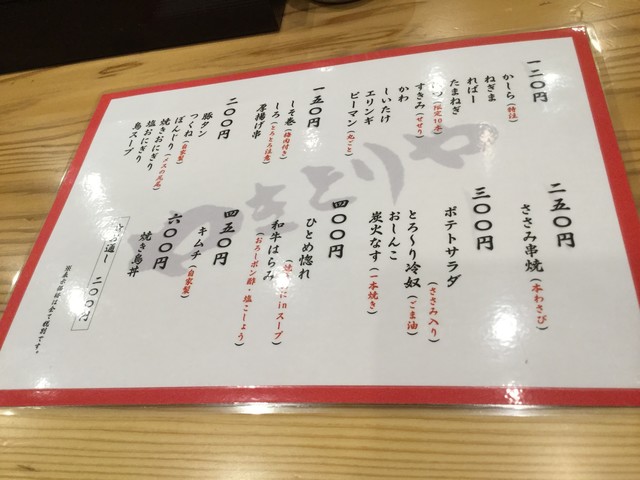 一二〇円
かしら（特注）
ねぎま
ればー
たまねぎ
（限定10本）
すきみ（せせり）
かわ
しいたけ
エリンギ
ピーマン（丸ごと）
一五〇円
しそ巻（梅肉付き）
しろ（とろとろ注意）
厚揚げ串
二〇〇円
豚タン
つくね（自家製）
ぼんじり（メスの三角）
焼きおにぎり
塩おにぎり
鳥スープ
二五〇円
ささみ串焼（本わさび）
三〇〇円
ポテトサラダ（ささみ入り）
とろ〜り冷奴（ごま油）
おしんこ
炭火なす（一本焼き）
四〇〇円
ひとめ惚れ
inスープ）
和牛はらみ（おろしポン酢・塩こしょう）
四五〇円
キムチ（自家製）
六〇〇円
焼き鳥丼
通し 二〇〇円
全て税別です。
やきとりや